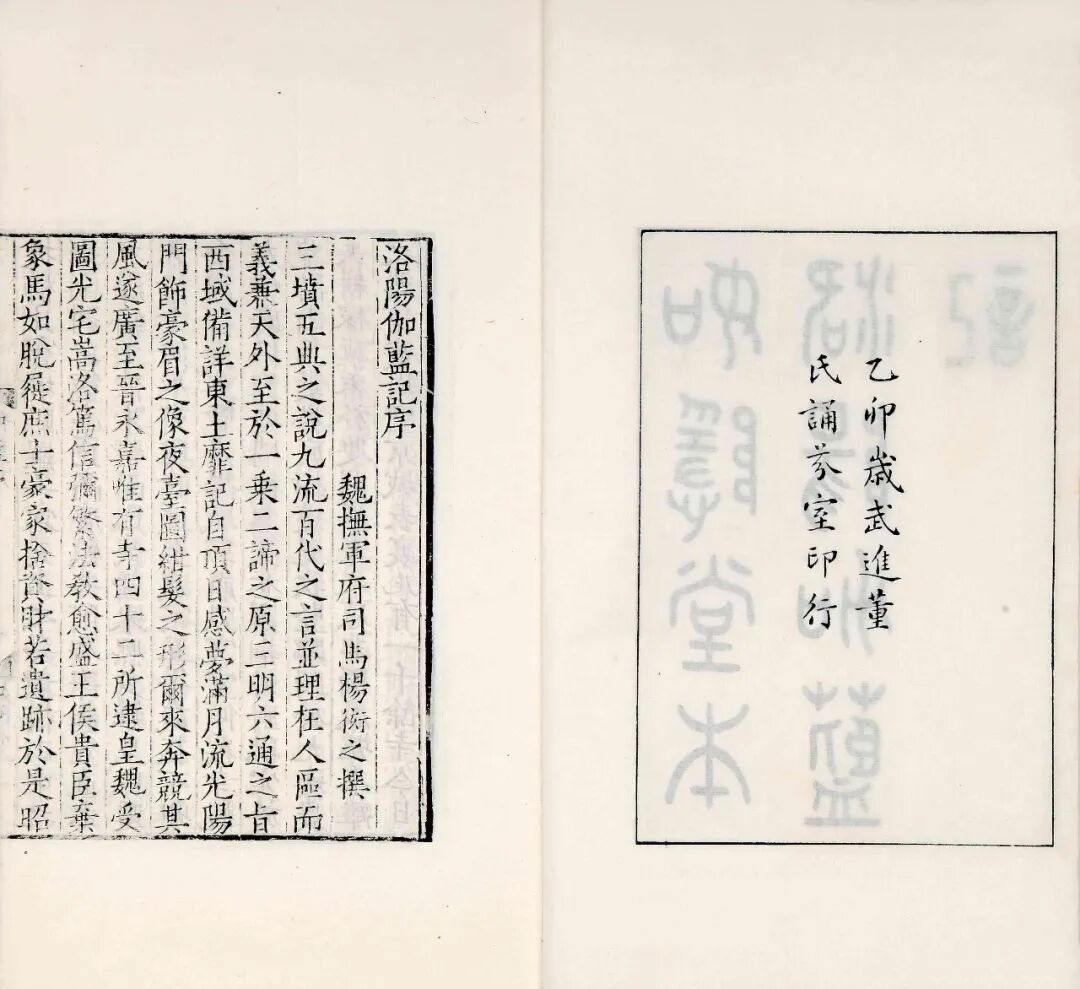 乙卯歲武進董
氏誦芬室印行
洛陽伽藍記序
魏撫軍府司馬楊衒之撰
三墳五典之說九流百代之言並理在人區而
義兼天外至於一乘二諦之原三明六通之旨
西域備詳東土靡記自項日感夢滿月流光陽
門飾豪眉之像夜臺圖紺髮之形爾來奔競其
風遂廣至晉永嘉唯有寺四十二所逮皇魏受
圖光宅嵩洛篤信彌繁法教愈盛王侯貴臣棄
象馬如脫屣庶士豪家捨資財若遺跡於是昭